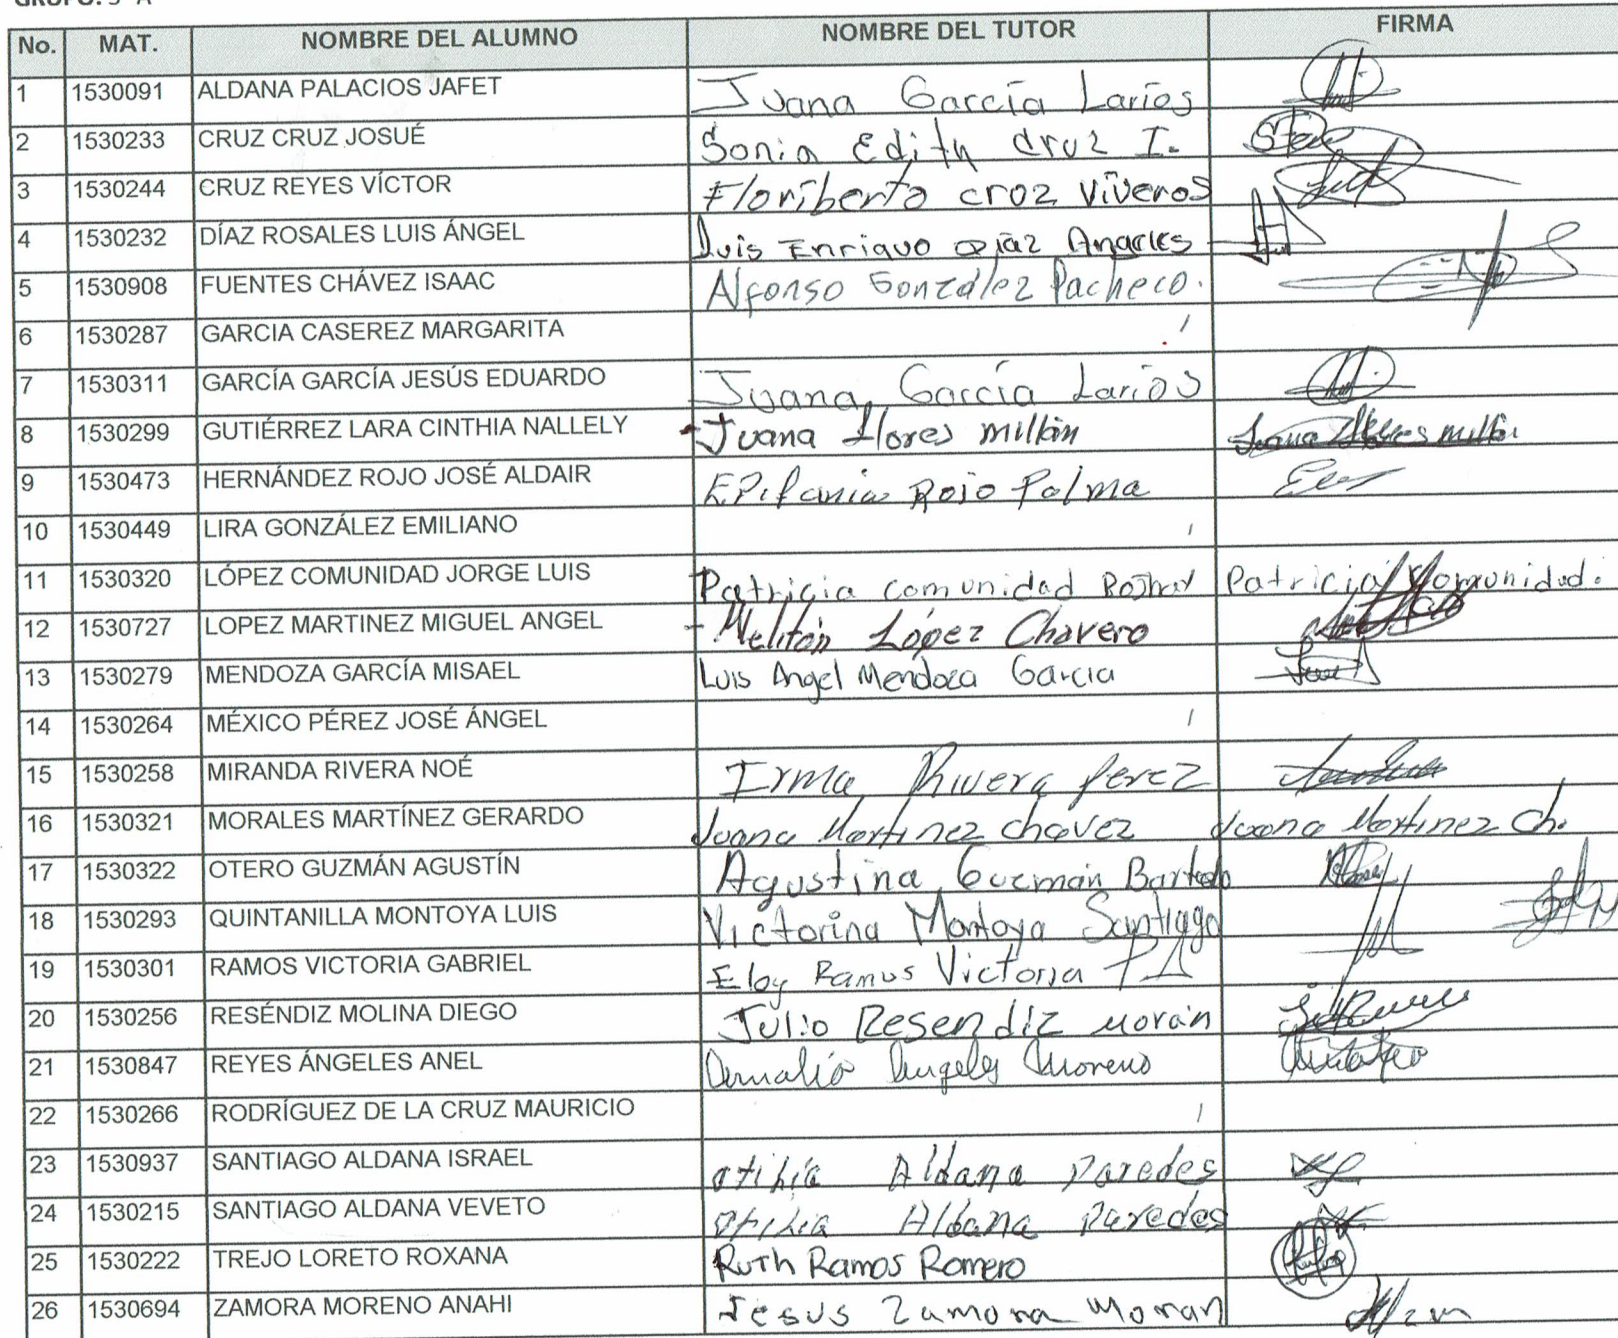 GRUPO: 3° A
No. MAT. NOMBRE DEL ALUMNO NOMBRE DEL TUTOR FIRMA
1 1530091 ALDANA PALACIOS JAFET Juana García Larios
2 1530233 CRUZ CRUZ JOSUÉ Sonia Edith Cruz I.
3 1530244 CRUZ REYES VÍCTOR Floriberto Cruz Viveros
4 1530232 DÍAZ ROSALES LUIS ÁNGEL Luis Enrique Díaz Angeles
5 1530908 FUENTES CHÁVEZ ISAAC Alfonso González Pacheco.
6 1530287 GARCIA CASEREZ MARGARITA
7 1530311 GARCÍA GARCÍA JESÚS EDUARDO Juana García Larios
8 1530299 GUTIÉRREZ LARA CINTHIA NALLELY Juana Flores millán Juana Flores millán
9 1530473 HERNÁNDEZ ROJO JOSÉ ALDAIR EPifania Rojo Palma
10 1530449 LIRA GONZÁLEZ EMILIANO
11 1530320 LÓPEZ COMUNIDAD JORGE LUIS Patricia Comunidad Patricia Comunidad.
12 1530727 LOPEZ MARTINEZ MIGUEL ANGEL - Melitón López Chavero
13 1530279 MENDOZA GARCÍA MISAEL Luis Angel Mendoza Garcia
14 1530264 MÉXICO PÉREZ JOSÉ ÁNGEL
15 1530258 MIRANDA RIVERA NOÉ Irma Rivera Perez
16 1530321 MORALES MARTÍNEZ GERARDO Juana Martinez Chavez Juana Martinez Ch.
17 1530322 OTERO GUZMÁN AGUSTÍN Agustina Guzmán
18 1530293 QUINTANILLA MONTOYA LUIS Victorina Montoya Santiago
19 1530301 RAMOS VICTORIA GABRIEL Eloy Ramos Victoria
20 1530256 RESÉNDIZ MOLINA DIEGO Julio Resendiz Morán
21 1530847 REYES ÁNGELES ANEL Amalia Angeles Moreno
22 1530266 RODRÍGUEZ DE LA CRUZ MAURICIO
23 1530937 SANTIAGO ALDANA ISRAEL Otilia Aldana Paredes
24 1530215 SANTIAGO ALDANA VEVETO Otilia Aldana Paredes
25 1530222 TREJO LORETO ROXANA Ruth Ramos Romero
26 1530694 ZAMORA MORENO ANAHI Jesus Zamora Moran